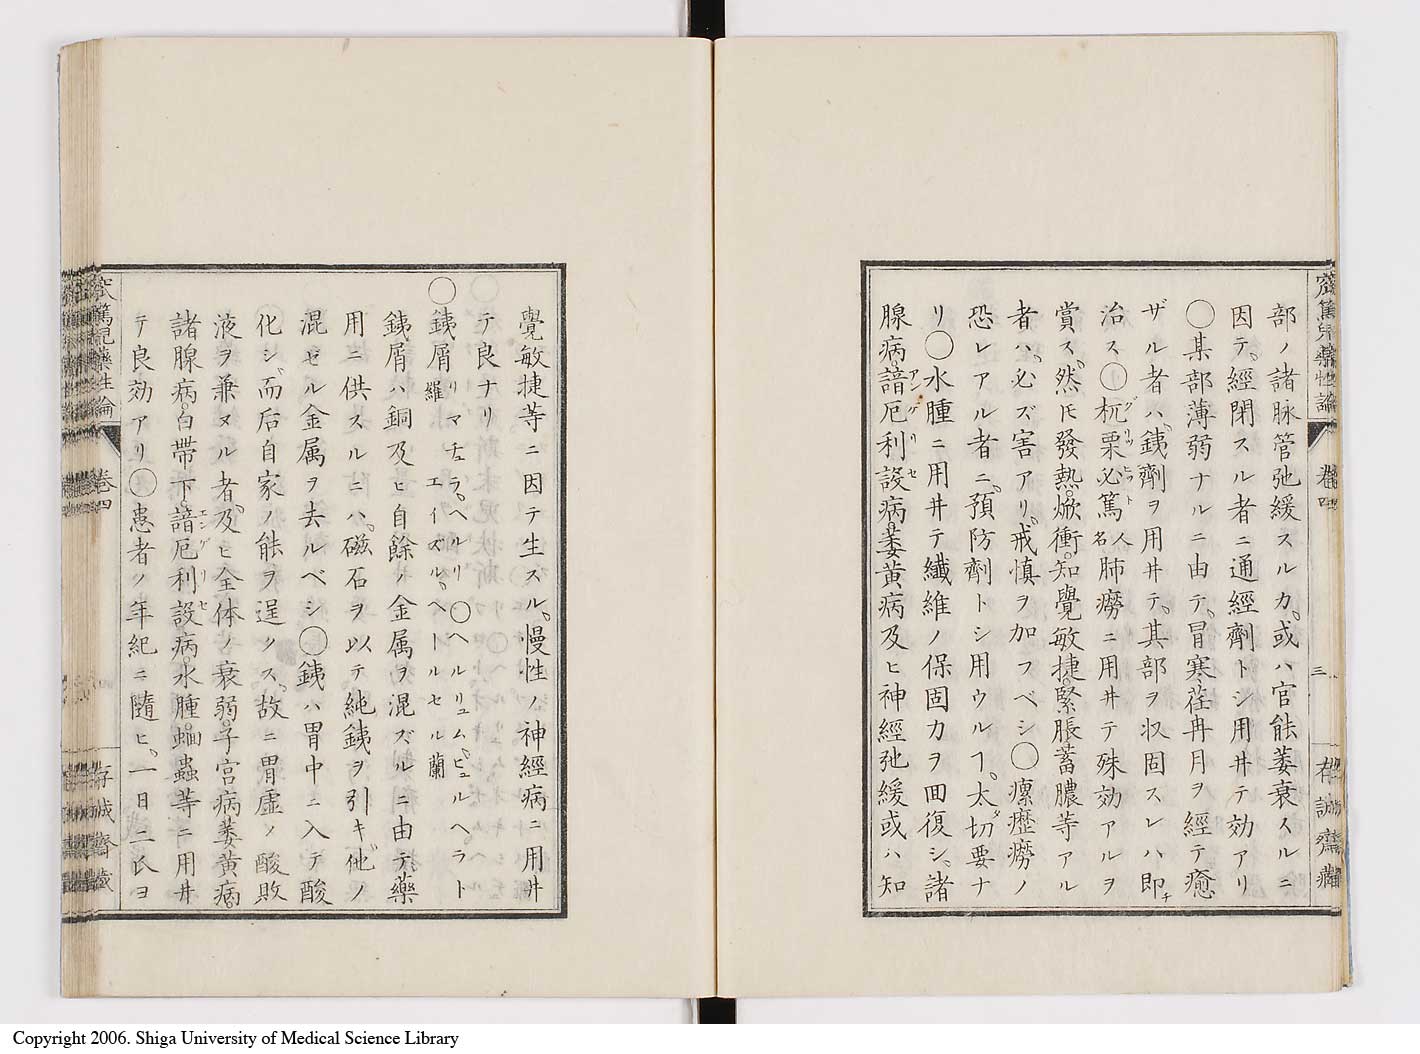 部ノ諸脉管弛緩スルカ、或ハ官能萎衰スルニ
因テ、經閉スル者ニ通經劑トシ用井テ効アリ
〇某部薄弱ナルニ由テ、冒寒、荏冉月ヲ經テ癒
ザル者ハ、鉄劑ヲ用井テ、其部ヲ収固スレハ即チ
治ス〇杌栗必篤人名肺癆ニ用井テ殊効アルヲ
賞ス、然𪜈發熱、焮衝、知覺敏捷、緊脹蓄膿等アル
者ハ、必ズ害アリ、戒慎ヲ加フベシ〇瘰癧癆ノ
恐レアル者ニ、預防劑トシ用ウルヿ、太ダ切要ナ
リ〇水腫ニ用井テ纎維ノ保固力ヲ回復シ、諸
腺病、諳厄利設病、萎黄病及ヒ神經弛緩或ハ知
卷四
三
存誠齋藏
覺敏捷等ニ因テ生スル、慢性ノ神經病ニ用井
テ良ナリ
〇鉄屑 リマチュラ、ヘルリ〇ヘルリュム、ピュルヘラト
羅 エイズル、ヘールセル蘭
鉄屑ハ銅及ヒ自餘ノ金属ヲ混ズルニ由テ、藥
用ニ供スルニハ、磁石ヲ以テ純鉄ヲ引キ、他ノ
混ゼル金属ヲ去ルベシ〇鉄ハ胃中ニ入テ酸
化シ、而后自家ノ能ヲ逞クス、故ニ胃虚ノ酸敗
液ヲ兼ヌル者、及ヒ全体ノ衰弱、子宮病、萎黄病、
諸腺病、白帯下、諳厄利設病、水腫、蛔蟲等ニ用井
テ良効アリ〇患者ノ年紀ニ隨ヒ、一日二氏ヨ
藥性論
卷四
存誠齋藏
Copyright 2006. Shiga University of Medical Science Library